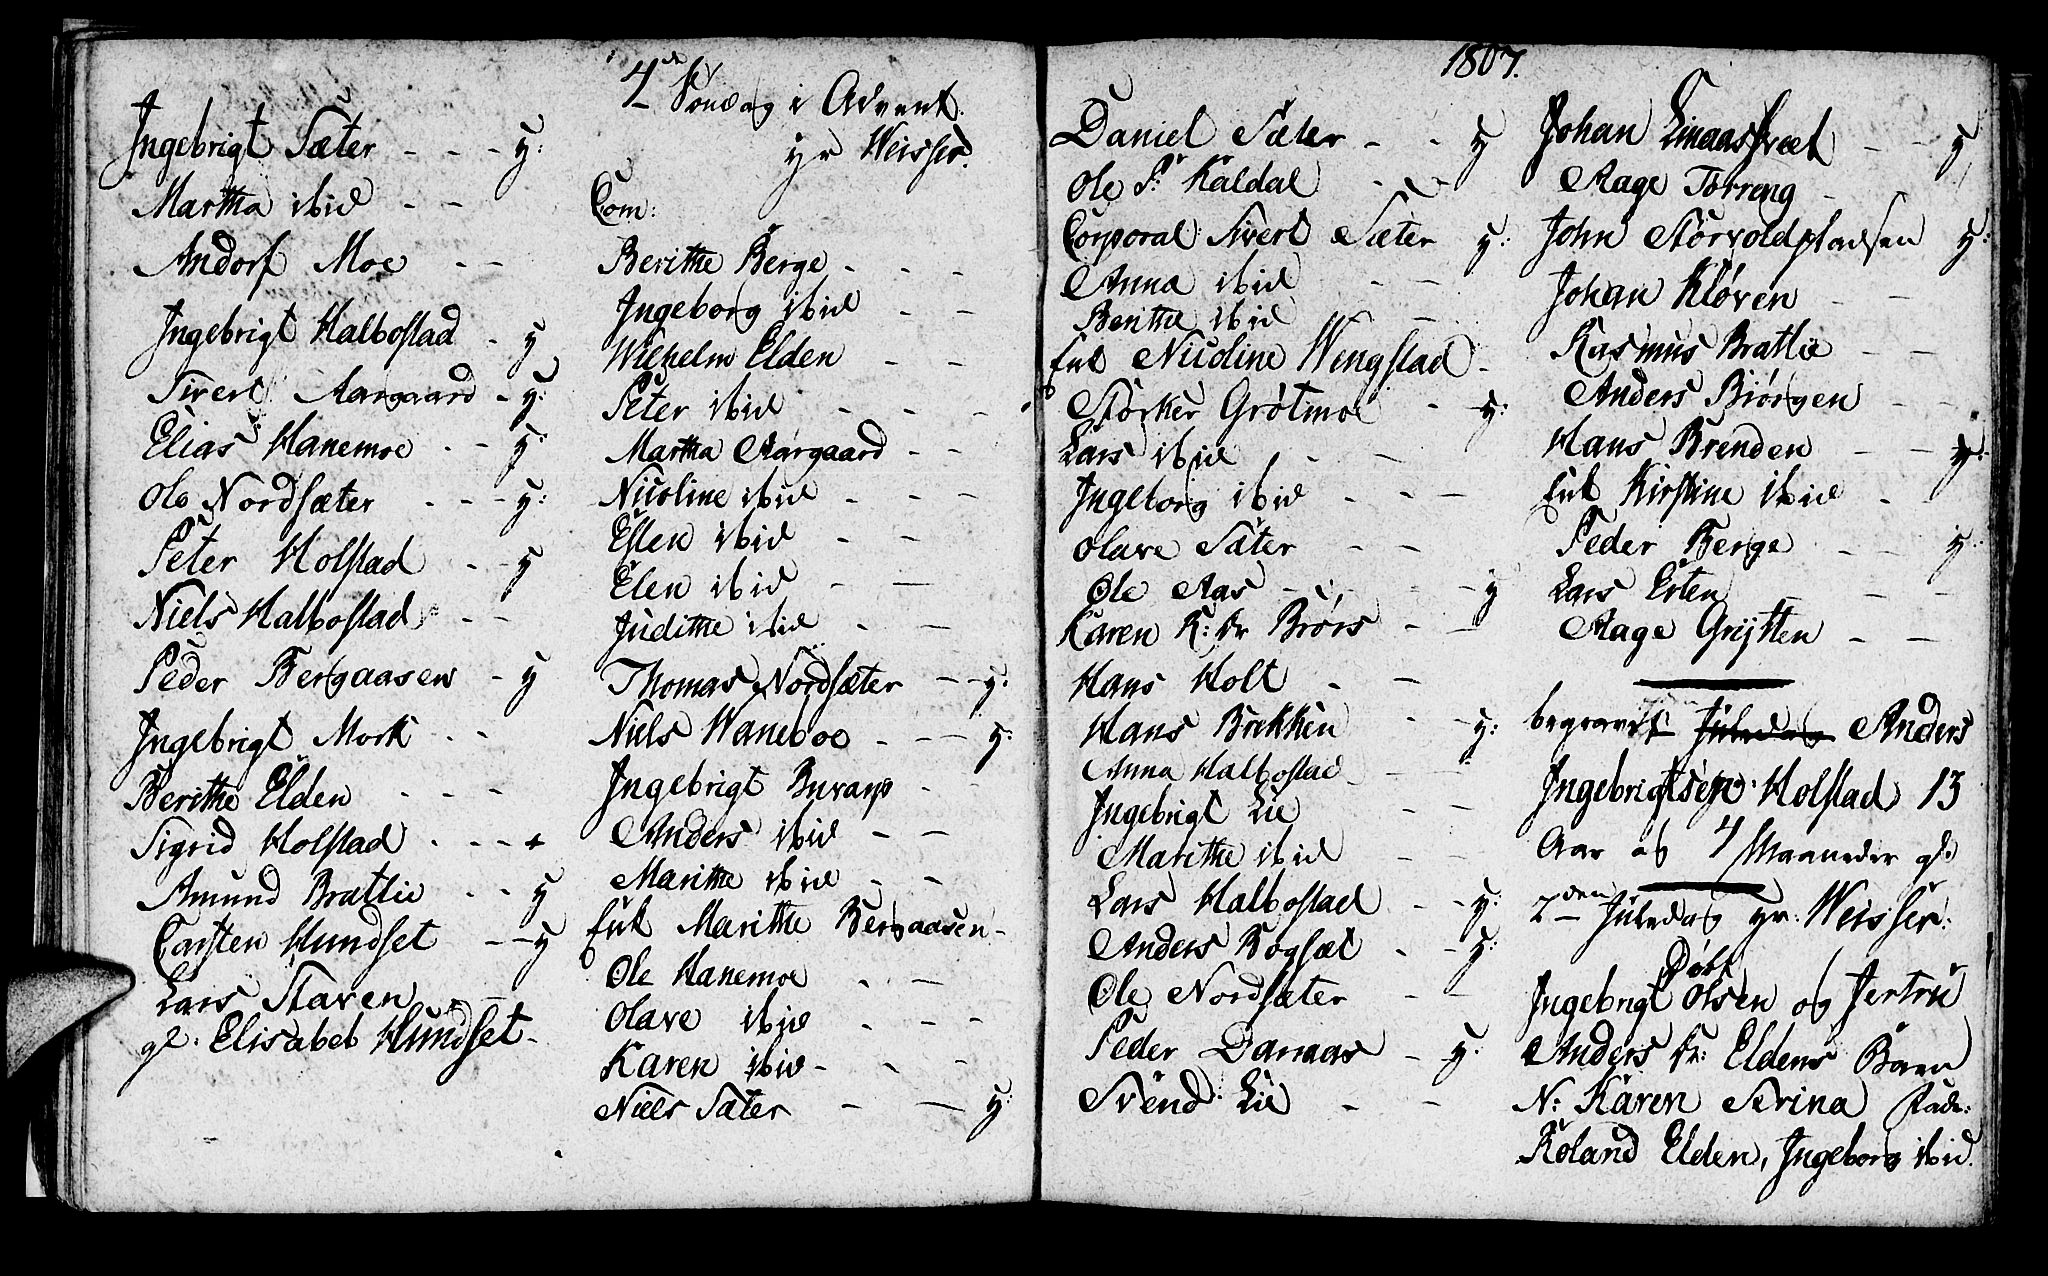 Ingebrigt Sæter - - - y:
Martha ibid - -
Andorf Moe - -
Ingebrigt Halbostad - y
Sivert Aargaard - y:
Elias Hanemoe - - y:
Ole Nordsæter - - - y:
Peter Holstad - - y
Niels Halbostad - -
Peder Bergaasen - y
Ingebrigt Mork - -
Berithe Elden - - -
Sigrid Holstad - - - +
Amund Brattlie - - y
Carsten Hundset - - y
Lars Staven - -
gl. Elisabet Hundset -
4de Söndag i Advent.
Weisser.
Com:
Berithe Berge - - -
Ingeborg ibid - -
Wilhelm Elden - -
Peter ibid - - -
Martha Aargaard - -
Nicoline ibid - - -
Esten ibid - -
Elen ibid - -
Judithe ibid - -
Thomas Nordsæter - - y:
Niels Waneboe - - - y:
Ingebrigt Buvarp - -
Anders ibid - -
Marithe ibid - -
Enk Marithe Bergaasen -
Ole Hanemoe - -
Olave ibid - - -
Karen ibid - - -
Niels Sæter - - y:
1807.
Daniel Sæter - - y
Ole P: Kaldal - -
Corporal Sivert Sæter y:
Anna ibid - -
Berithe ibid - -
Enk Nicoline Wengstad -
Störker Grötmoe - y:
Lars ibid - -
Ingeborg ibid - - -
Olave Sæter - -
Ole Aas - - - y
Karen K: Br Brörs - -
Hans Holt - -
Hans Brekken - - y:
Anna Halbostad - -
Ingebrigt Lie - -
Marithe ibid - -
Lars Halbostad - - y:
Anders Rogsæt - - y:
Ole Nordsæter - -
Peder Danaas - y:
Svend Lie - -
Johan - - y
Aage Törreng -
John Störvoldpladsen y:
Johan Klöven - -
Rasmus Brattlie - -
Anders Biörgen - -
Hans Brenden - - y:
Enk Kirstine ibid -
Peder Berge - - y:
Lars Erten - - -
Aage Grytten - -
begravet Juledag Anders
Ingebrigtsen Holstad 13
Aar og 4 Maaneder gl:
2den Juledag Weisser.
Döbt
Ingebrigt Olsen og Jertru
Anders Dr: Eldens Barn
N: Karen Serina Fadr:
Roland Elden, Ingeborg ibid.